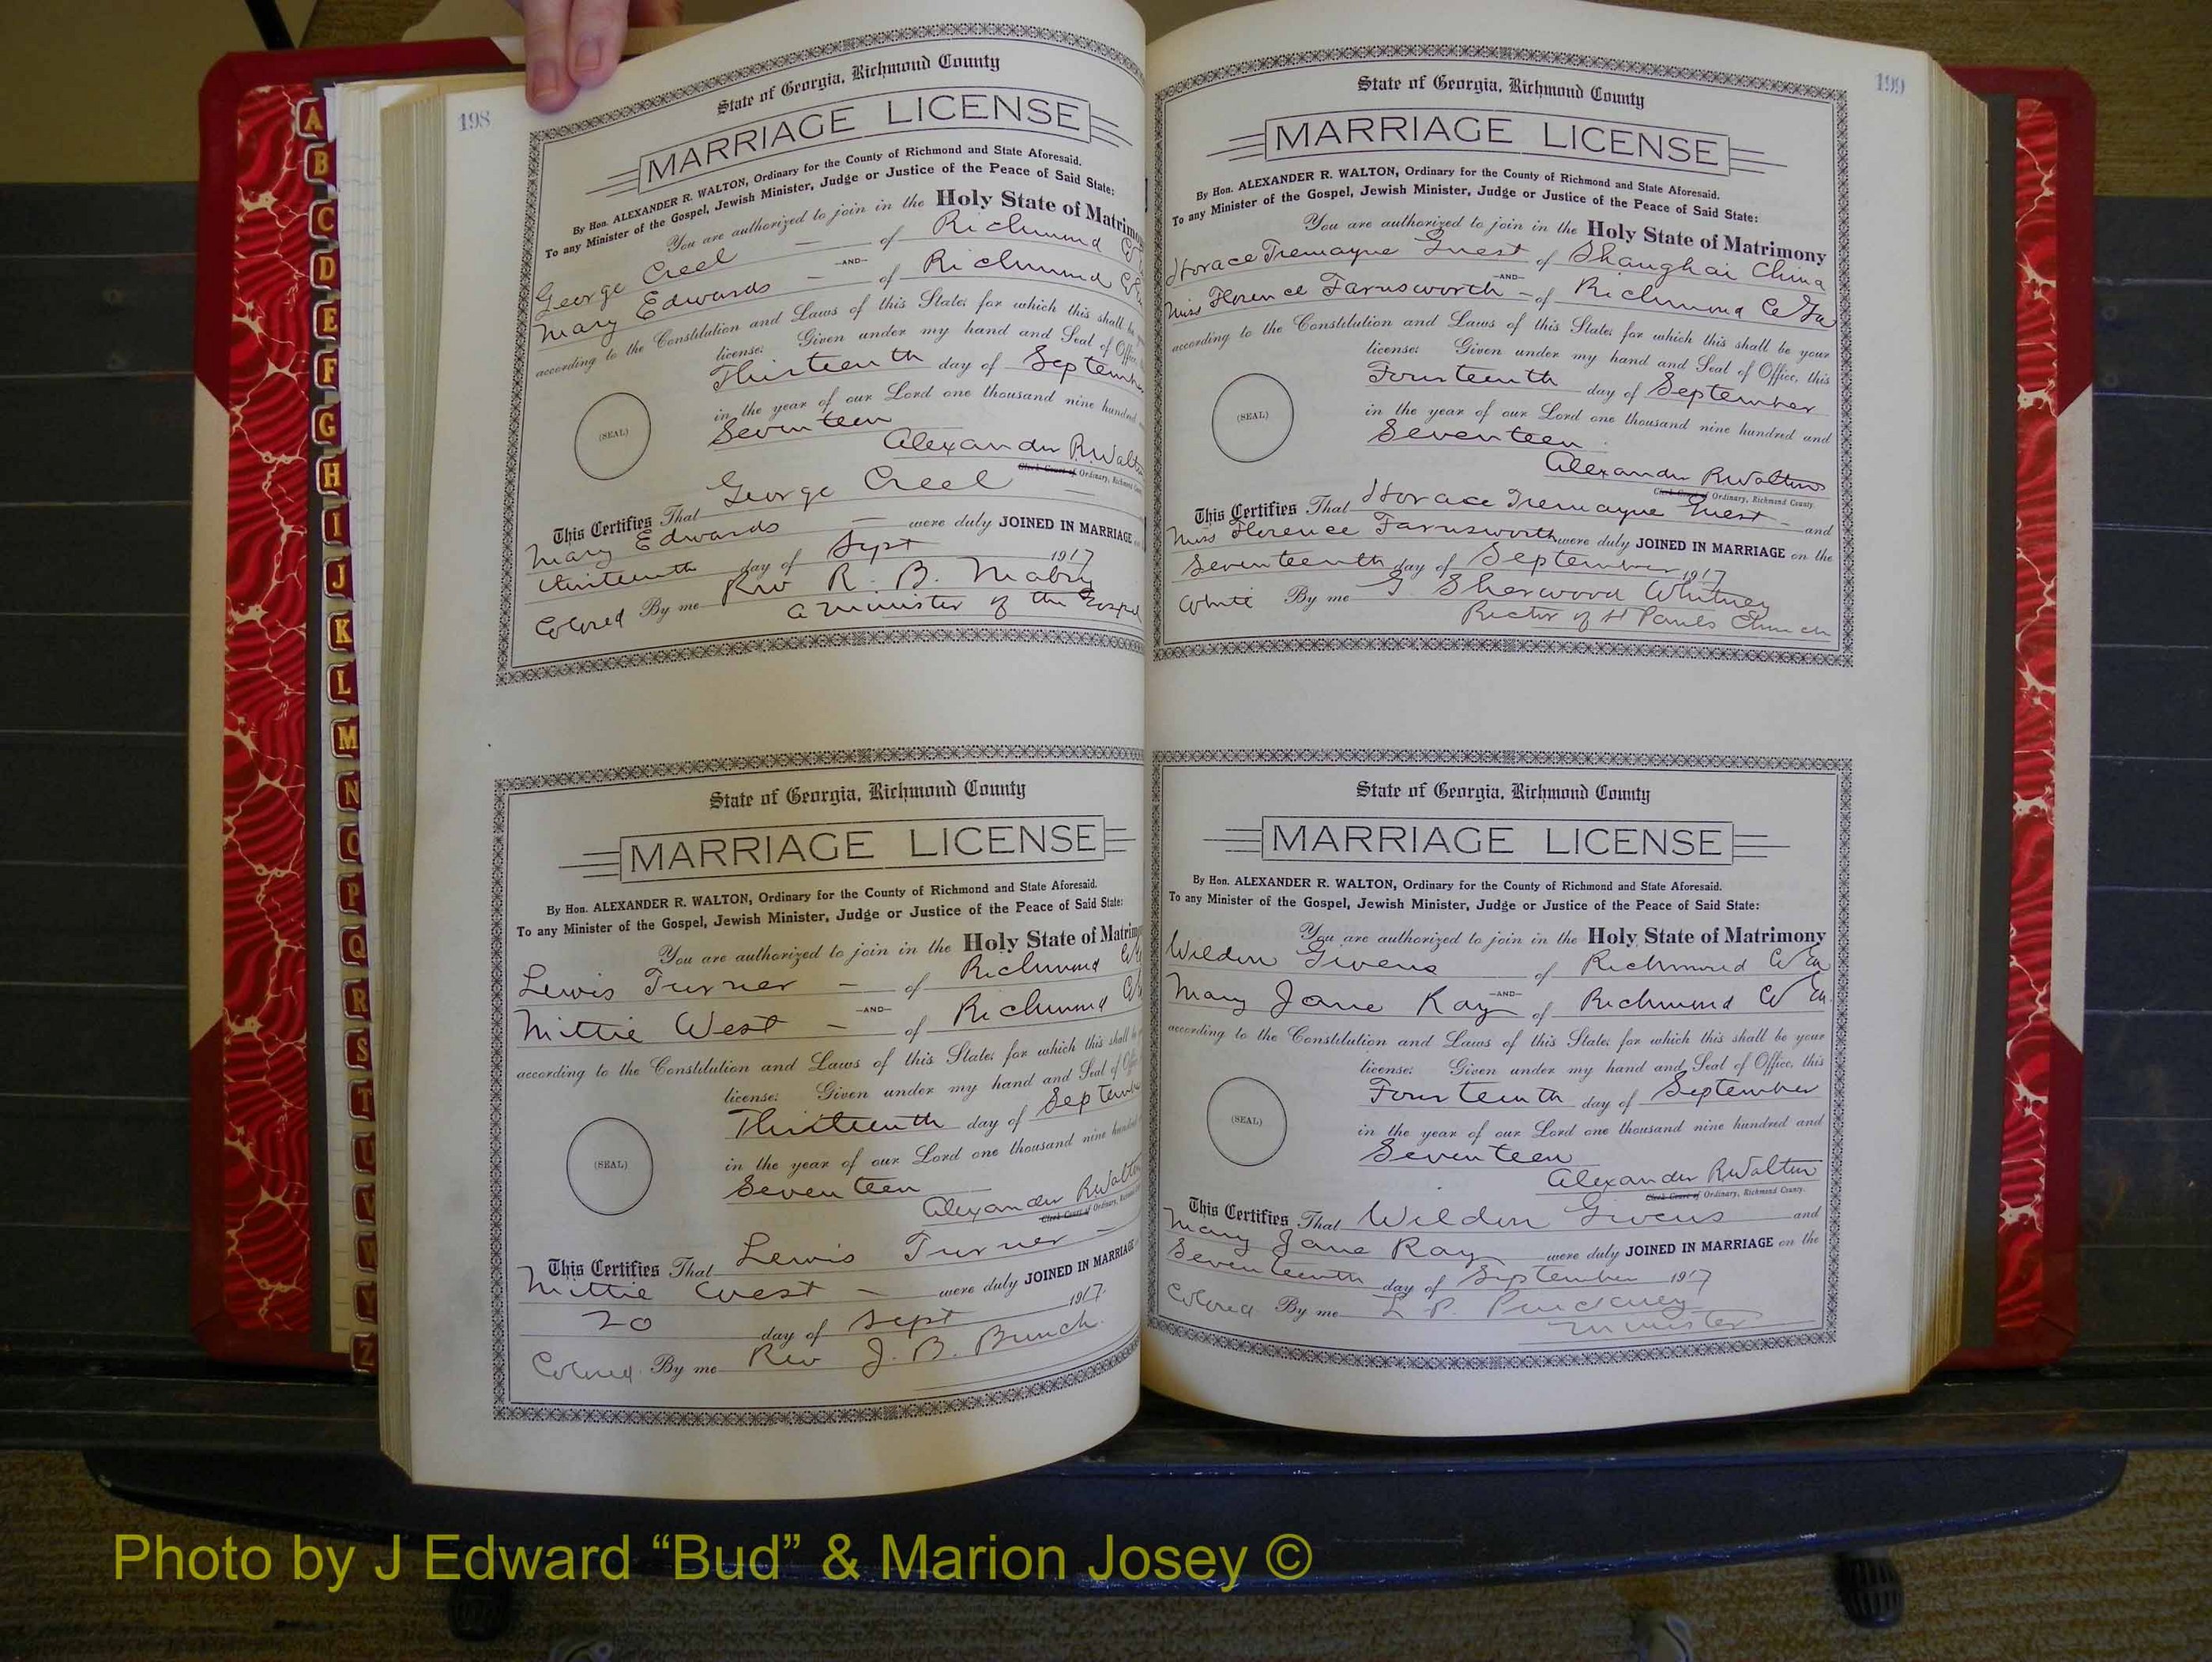 198
State of Georgia, Richmond County
MARRIAGE LICENSE
By Hon. ALEXANDER R. WALTON, Ordinary for the County of Richmond and State Aforesaid.
To any Minister of the Gospel, Jewish Minister, Judge or Justice of the Peace of Said State:
You are authorized to join in the Holy State of Matrimo
George Creel — of Richmond
—AND—
Mary Edwards — of Richmond
according to the Constitution and Laws of this State; for which this shall be
license: Given under my hand and Seal of Office,
Thirteenth day of September
in the year of our Lord one thousand nine hundred
Seventeen
(SEAL)
Alexander R. Walton
Clerk Court of Ordinary, Richmond County
This Certifies That George Creel
Mary Edwards — were duly JOINED IN MARRIAGE
thirteenth day of Sept 1917
Colored By me Rev R. B. Mabry
a minister of the Gospel
State of Georgia, Richmond County
MARRIAGE LICENSE
By Hon. ALEXANDER R. WALTON, Ordinary for the County of Richmond and State Aforesaid.
To any Minister of the Gospel, Jewish Minister, Judge or Justice of the Peace of Said State:
You are authorized to join in the Holy State of Matrimo
Lewis Turner — of Richmond
—AND—
Mittie West — of Richmond
according to the Constitution and Laws of this State; for which this shall
license: Given under my hand and Seal of
Thirteenth day of Septemb
in the year of our Lord one thousand nine hundred
Seventeen
(SEAL)
Alexander R. Walton
Clerk Court of Ordinary,
This Certifies That Lewis Turner —
Mittie West — were duly JOINED IN MARRIAGE
20 day of Sept 1917
Colored By me Rev J. B. Bunch
199
State of Georgia, Richmond County
MARRIAGE LICENSE
By Hon. ALEXANDER R. WALTON, Ordinary for the County of Richmond and State Aforesaid.
To any Minister of the Gospel, Jewish Minister, Judge or Justice of the Peace of Said State:
You are authorized to join in the Holy State of Matrimony
Horace Tremayne Guest of Shanghai China
—AND—
Miss Florence Farnsworth — of Richmond Co Ga
according to the Constitution and Laws of this State; for which this shall be your
license: Given under my hand and Seal of Office, this
Fourteenth day of September
in the year of our Lord one thousand nine hundred and
Seventeen
(SEAL)
Alexander R Walton
Clerk Court of Ordinary, Richmond County.
This Certifies That Horace Tremayne Guest — and
Miss Florence Farnsworth were duly JOINED IN MARRIAGE on the
Seventeenth day of September 1917
White By me G Sherwood Whitney
Rector of St Pauls Church
State of Georgia, Richmond County
MARRIAGE LICENSE
By Hon. ALEXANDER R. WALTON, Ordinary for the County of Richmond and State Aforesaid.
To any Minister of the Gospel, Jewish Minister, Judge or Justice of the Peace of Said State:
You are authorized to join in the Holy State of Matrimony
Weldon Givens of Richmond Co Ga
—AND—
Mary Jane Ray of Richmond Co Ga
according to the Constitution and Laws of this State; for which this shall be your
license: Given under my hand and Seal of Office, this
Fourteenth day of September
in the year of our Lord one thousand nine hundred and
Seventeen
(SEAL)
Alexander R Walton
Clerk Court of Ordinary, Richmond County.
This Certifies That Weldon Givens and
Mary Jane Ray were duly JOINED IN MARRIAGE on the
Seventeenth day of September 1917
Colored By me L P. Pinckney
minister
A
B
C
D
E
F
G
H
I
J
K
L
M
N
O
P
Q
R
S
T
U
V
W
Y
Z
Photo by J Edward “Bud” & Marion Josey ©